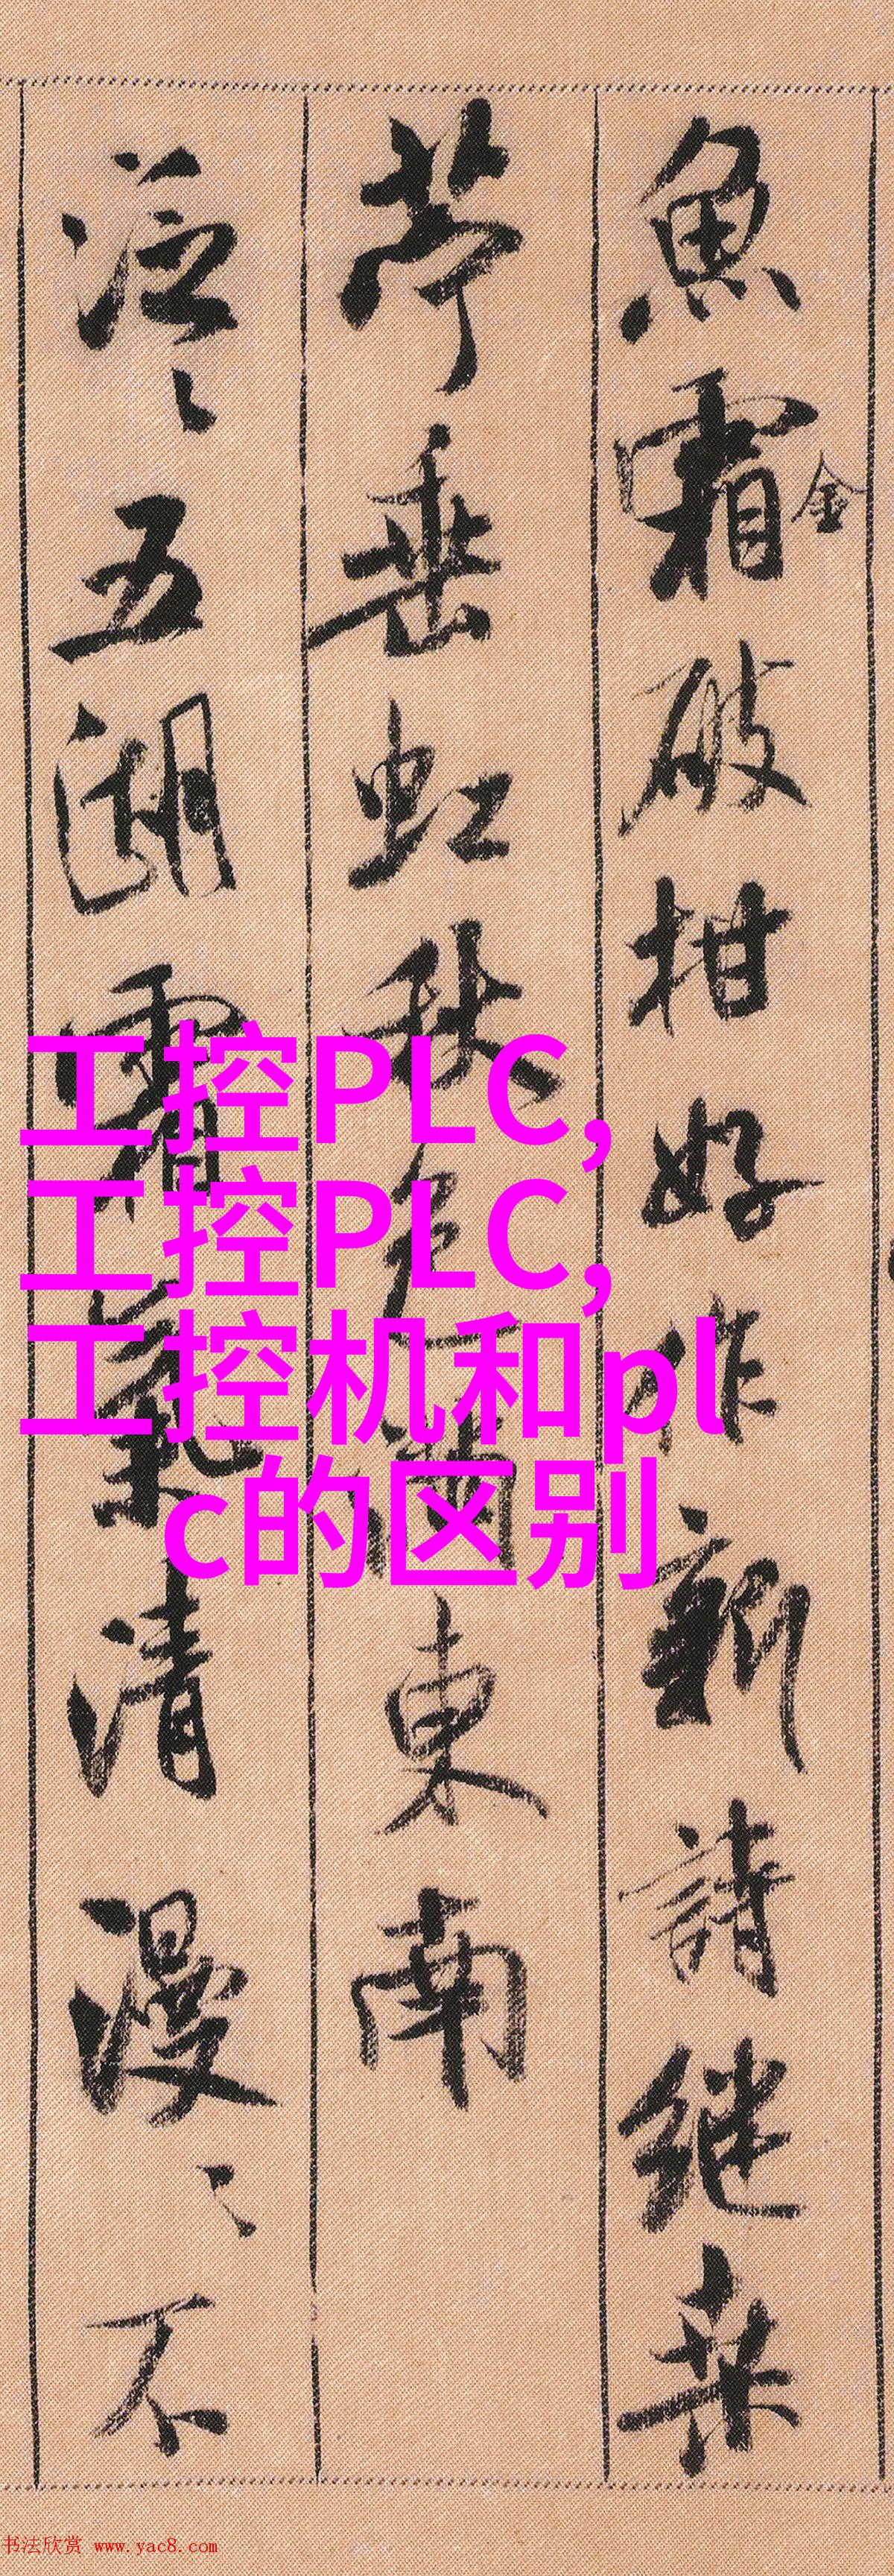 魚霜金破柑好作新詩继桒
苧垂虹秋色滿東南
泛〻五湖霜氣清漫〻不
工控PLC,
工控PLC,
工控机和pl
c的区别
书法欣赏 www.yac8.com